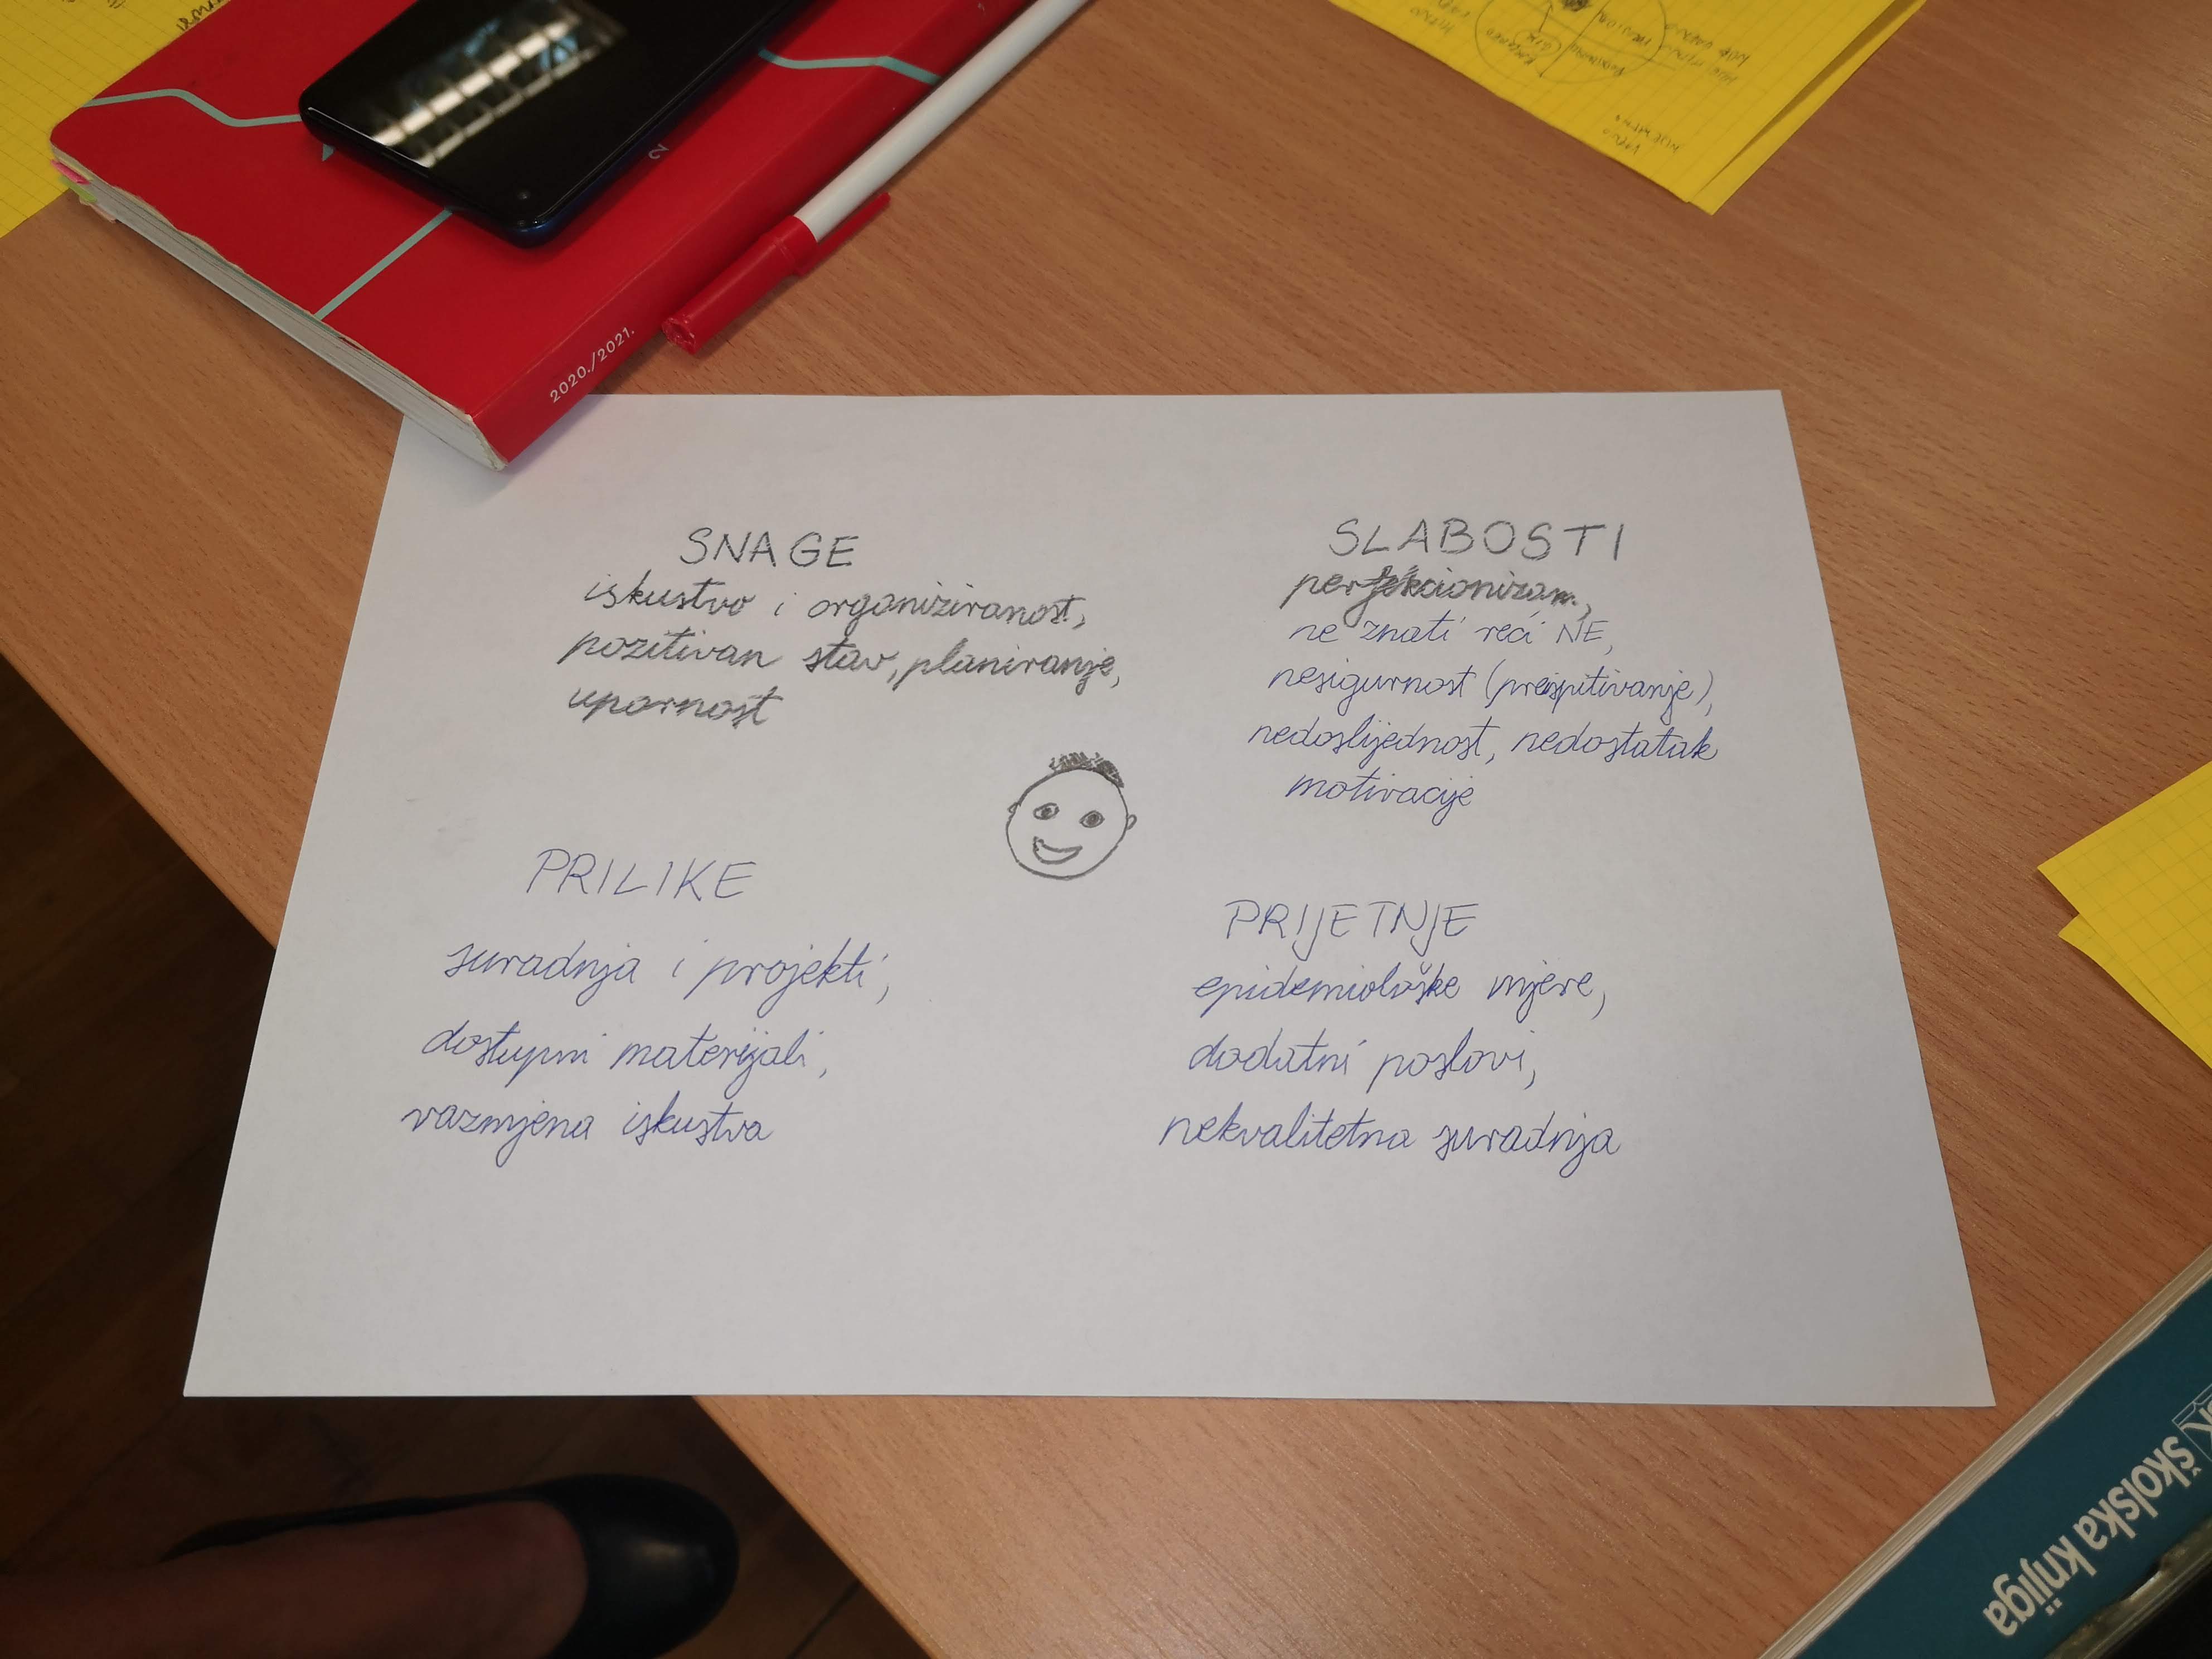 2
2020./2021.
SNAGE
iskustvo i organiziranost,
pozitivan stav, planiranje,
upornost
SLABOSTI
perfekcionizam,
ne znati reći NE,
nesigurnost (preispitivanje),
nedoslijednost, nedostatak
motivacije
PRILIKE
suradnja i projekti,
dostupni materijali,
razmjena iskustva
PRIJETNJE
epidemiološke mjere,
dodatni poslovi,
nekvalitetna suradnja
školska knjiga